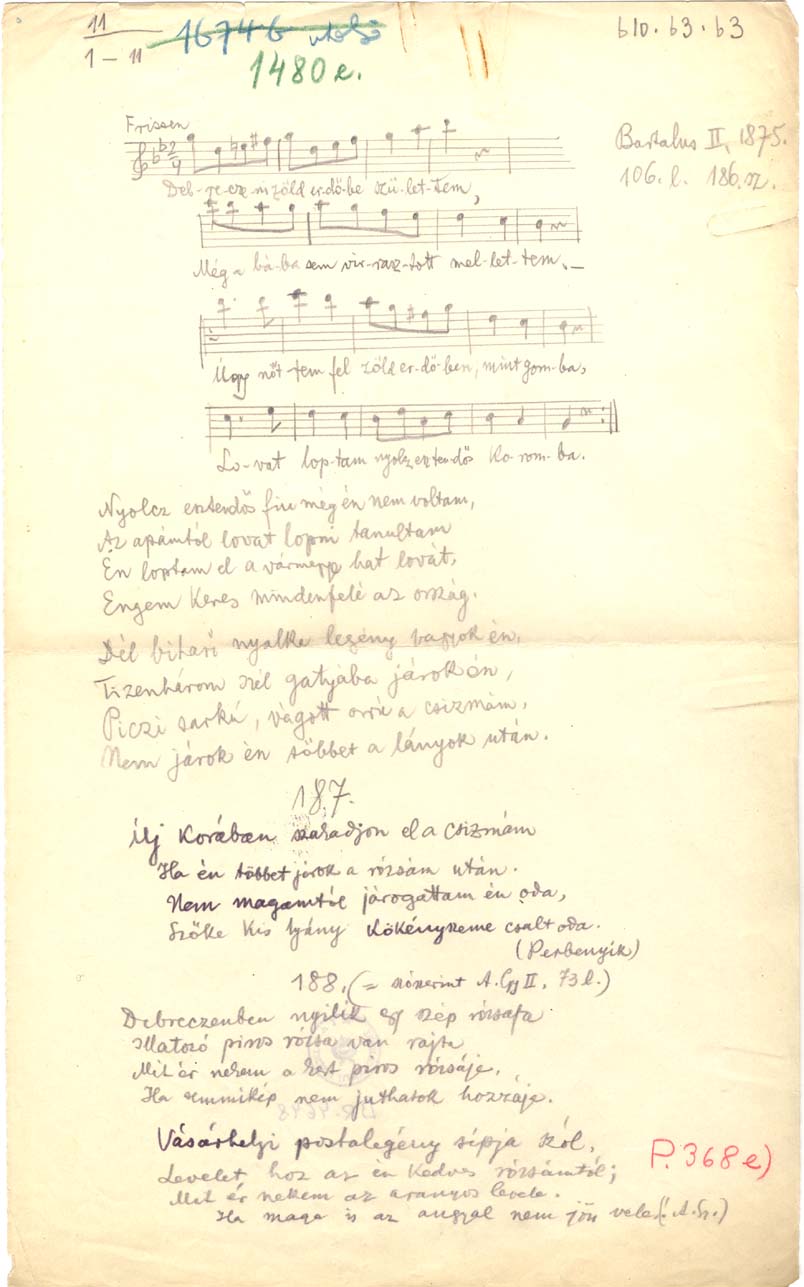 11
1-11
16746 utolsó
1480e.
610.63.63
Bartalus II, 1875.
106.l. 186.sz.
Frissen
2/4
Deb-re-cze-ni zöld er-dő-be szü-let-tem,
Még a bá-ba sem vir-rasz-tott mel-let-tem.
Úgy nőt-tem fel zöld er-dő-ben, mint gom-ba,
Lo-vat lop-tam nyolcz eszten-dős ko-rom-ba.
Nyolcz esztendős fiu még én nem voltam,
Az apámtól lovat lopni tanultam
Én loptam el a vármegye hat lovát,
Engem keres mindenfelé az ország.
Dél bihari nyalka legény vagyok én,
Tizenhárom szél gatyába járok én,
Piczi sarkú, vágott orrú a csizmám,
Nem járok én többet a lányok után.
187.
Uj korában szakadjon el a csizmám
Ha én többet járok a rózsám után.
Nem magamtól járogattam én oda,
Szőke kis lyány kökényszeme csalt oda.
(Perbenyik)
188. (= szószerint A.Gy II, 73 l.)
Debreczenben nyílik egy szép rózsafa
Illatozó piros rózsa van rajta
Mit ér nekem a kert piros rózsája,
Ha semmikép nem juthatok hozzája.
Vásárhelyi postalegény sípja szól,
Levelet hoz az én kedves rózsámtól;
Mit ér nekem az aranyos levele.
Ha maga is az angyal nem jön vele. (A.Sz.)
P. 368 e)